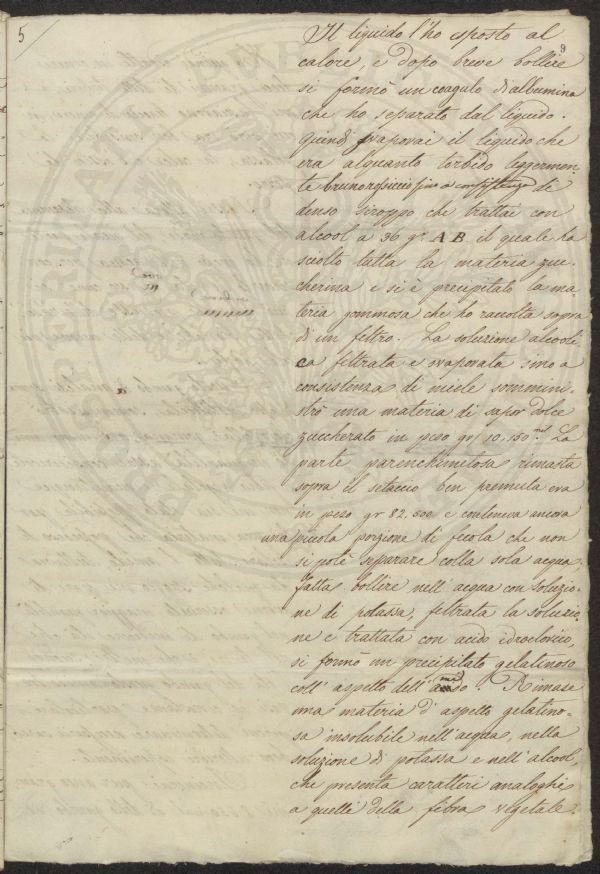 5
9
Il liquido l'ho esposto al
calore, e dopo breve bollire
si formò un coagulo di albumina
che ho separato dal liquido.
Quindi svaporai il liquido che
era alquanto torbido leggermen-
te bruno rossiccio fino a consistenza di
denso siroppo che trattai con
alcool a 36 gr. A B il quale ha
sciolto tutta la materia zuc-
cherina e si è precipitato la ma
teria gommosa che ho raccolta sopra
di un filtro. La soluzione alcooli
ca filtrata e svaporata sino a
consistenza di miele sommini
strò una materia di sapor dolce
zuccherato in peso gr 10,150 mil. La
parte parenchimitosa rimasta
sopra il setaccio ben premuta era
in peso gr 82,600 e conteneva ancora
una picola porzione di fecola che non
si potè separare colla sola acqua;
fatta bollire nell'acqua con soluzio-
ne di potassa, filtrata la soluzio
ne e trattata con acido idroclorico,
si formò un precipitato gelatinoso
coll'aspetto dell' Rimase
una materia d'aspetto gelatino-
sa insolubile nell'acqua, nella
soluzione di potassa e nell'alcool,
che presenta caratteri analoghi
a quelli della fibra vegetale.